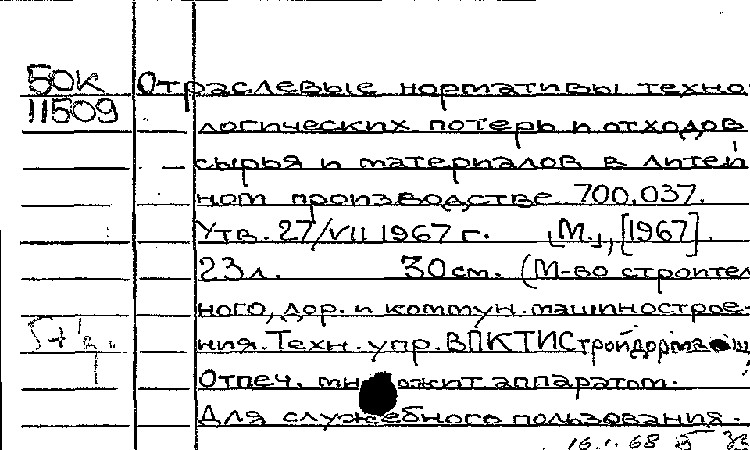 БОК Отраслевые нормативы техно-
11509
логических потерь и отходов
сырья и материалов в литей
ном производстве 700.037.
Утв. 27/VII 1967 г. [М.], [1967].
23 л. 30 см. (М-во строитель
ного, дор. и коммун. машинострое-
ния. Техн. упр. ВПКТИСтройдормаш
Отпеч. множит аппаратом.
Для служебного пользования.
16.1.68